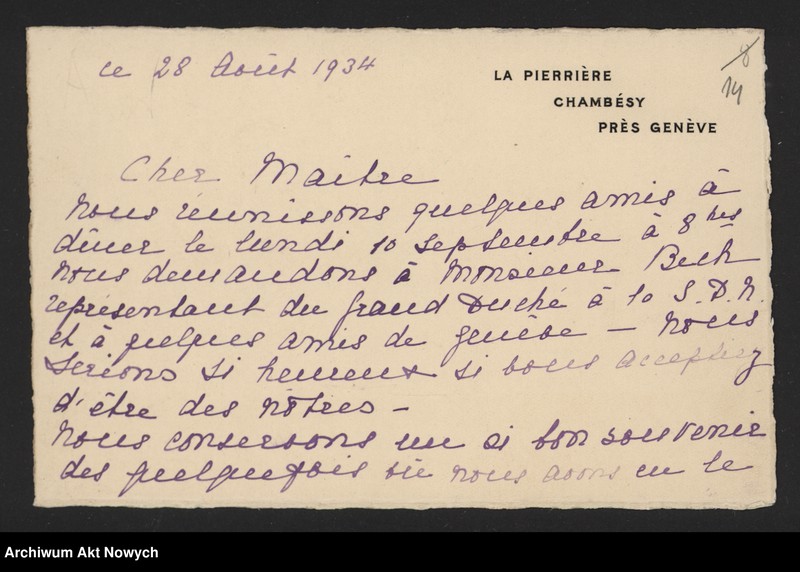 ce 28 Août 1934
LA PIERRIÈRE
CHAMBÉSY
PRÈS GENÈVE
8
14
Cher Maitre
nous réunissons quelques amis à
dîner le lundi 10 septembre à 8 hrs
nous demandons à Monsieur Bech
représentant du Grand Duché à la S.D.N.
et à quelques amis de genève — nous
serions si heureux si vous acceptiez
d'être des nôtres —
nous conservons un si bon souvenir
des quelquefois où nous avons eu le
Archiwum Akt Nowych